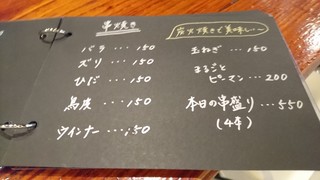 串焼き
バラ・・・150
ズリ・・・150
ひだ・・・150
鳥皮・・・150
ウインナー・・・150
炭火焼きで美味しい〜
玉ねぎ・・・150
まるごと
ピーマン・・・200
本日の串盛り・・・550
(4本)